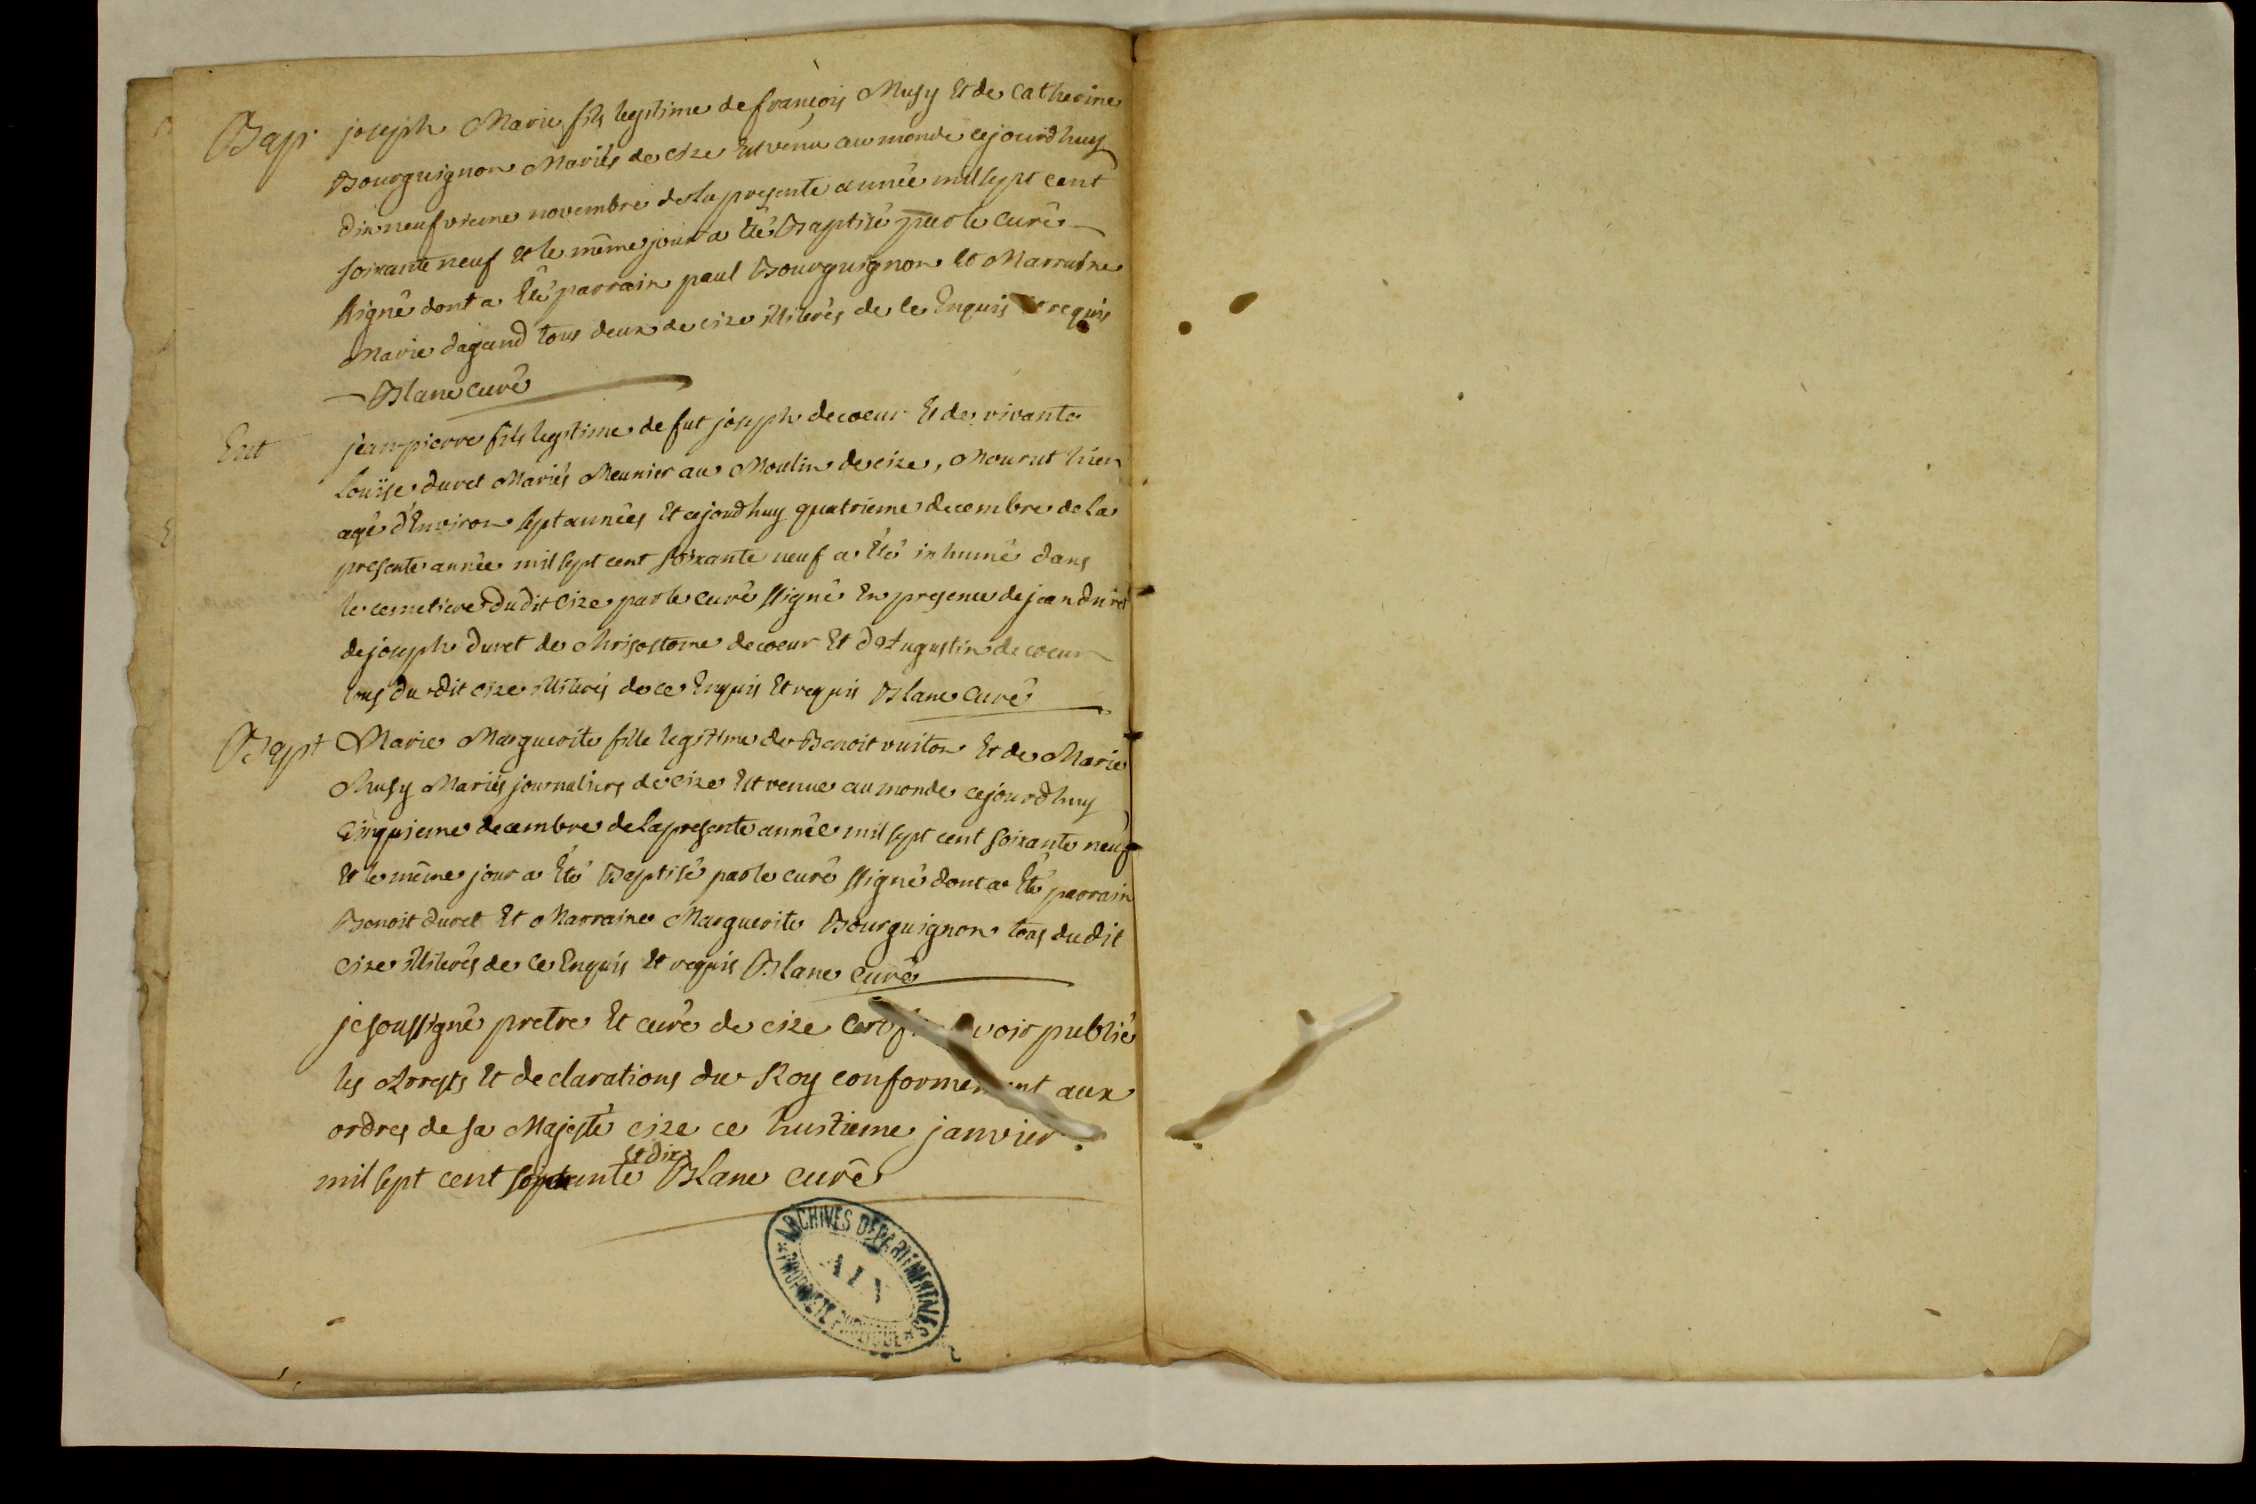 Bap. joseph Marie fils legitime de françois Musy Et de Catherine
Bourguignon Mariés de cize Est venu au monde cejourdhuy
dixneufvieme novembre de la presente année mil sept cent
soixante neuf Et le même jour a Eté Baptisé par le curé
ssigné dont a Eté parrain paul Bourguignon Et Marraine
Marie dagand tous deux de cize illiterés de ce Enquis Et requis
Blanc curé
Ent jean-pierre fils legitime de fut joseph decoeur Et de vivante
Louïse duret Mariés Meunier au Moulin de cize, Mourut hier
agé d'Environ sept années Et cejourdhuy quatrieme decembre de la
presente année mil sept cent soixante neuf a Eté inhumé dans
le cemetiere dudit Cize par le curé ssigné En presence de jean duret
de joseph duret de Chrisostome decoeur Et d'Augustin decoeur
tous du dit cize illiterés de ce Enquis Et requis Blanc Curé
Bapt Marie Marguerite fille legitime de Benoit vuiton Et de Marie
Musy Mariés journaliers de cize Est venue au monde cejourdhuy
Cinquieme decembre de la presente année mil sept cent soixante neuf
Et le même jour a Eté Baptisé par le curé ssigné dont a Eté parrain
Benoit duret Et Marraine Marguerite Bourguignon tous dudit
Cize illiterés de Ce Enquis Et requis Blanc curé
je soussigné pretre Et curé de cize avoir publié
les Arrests Et declarations du Roy conformement aux
ordres de sa Majesté cize ce huitieme janvier
mil sept cent soixante Et dix Blanc curé
ARCHIVES DÉPARTEMENTALES
AIN
* PROPRIÉTÉ PUBLIQUE *